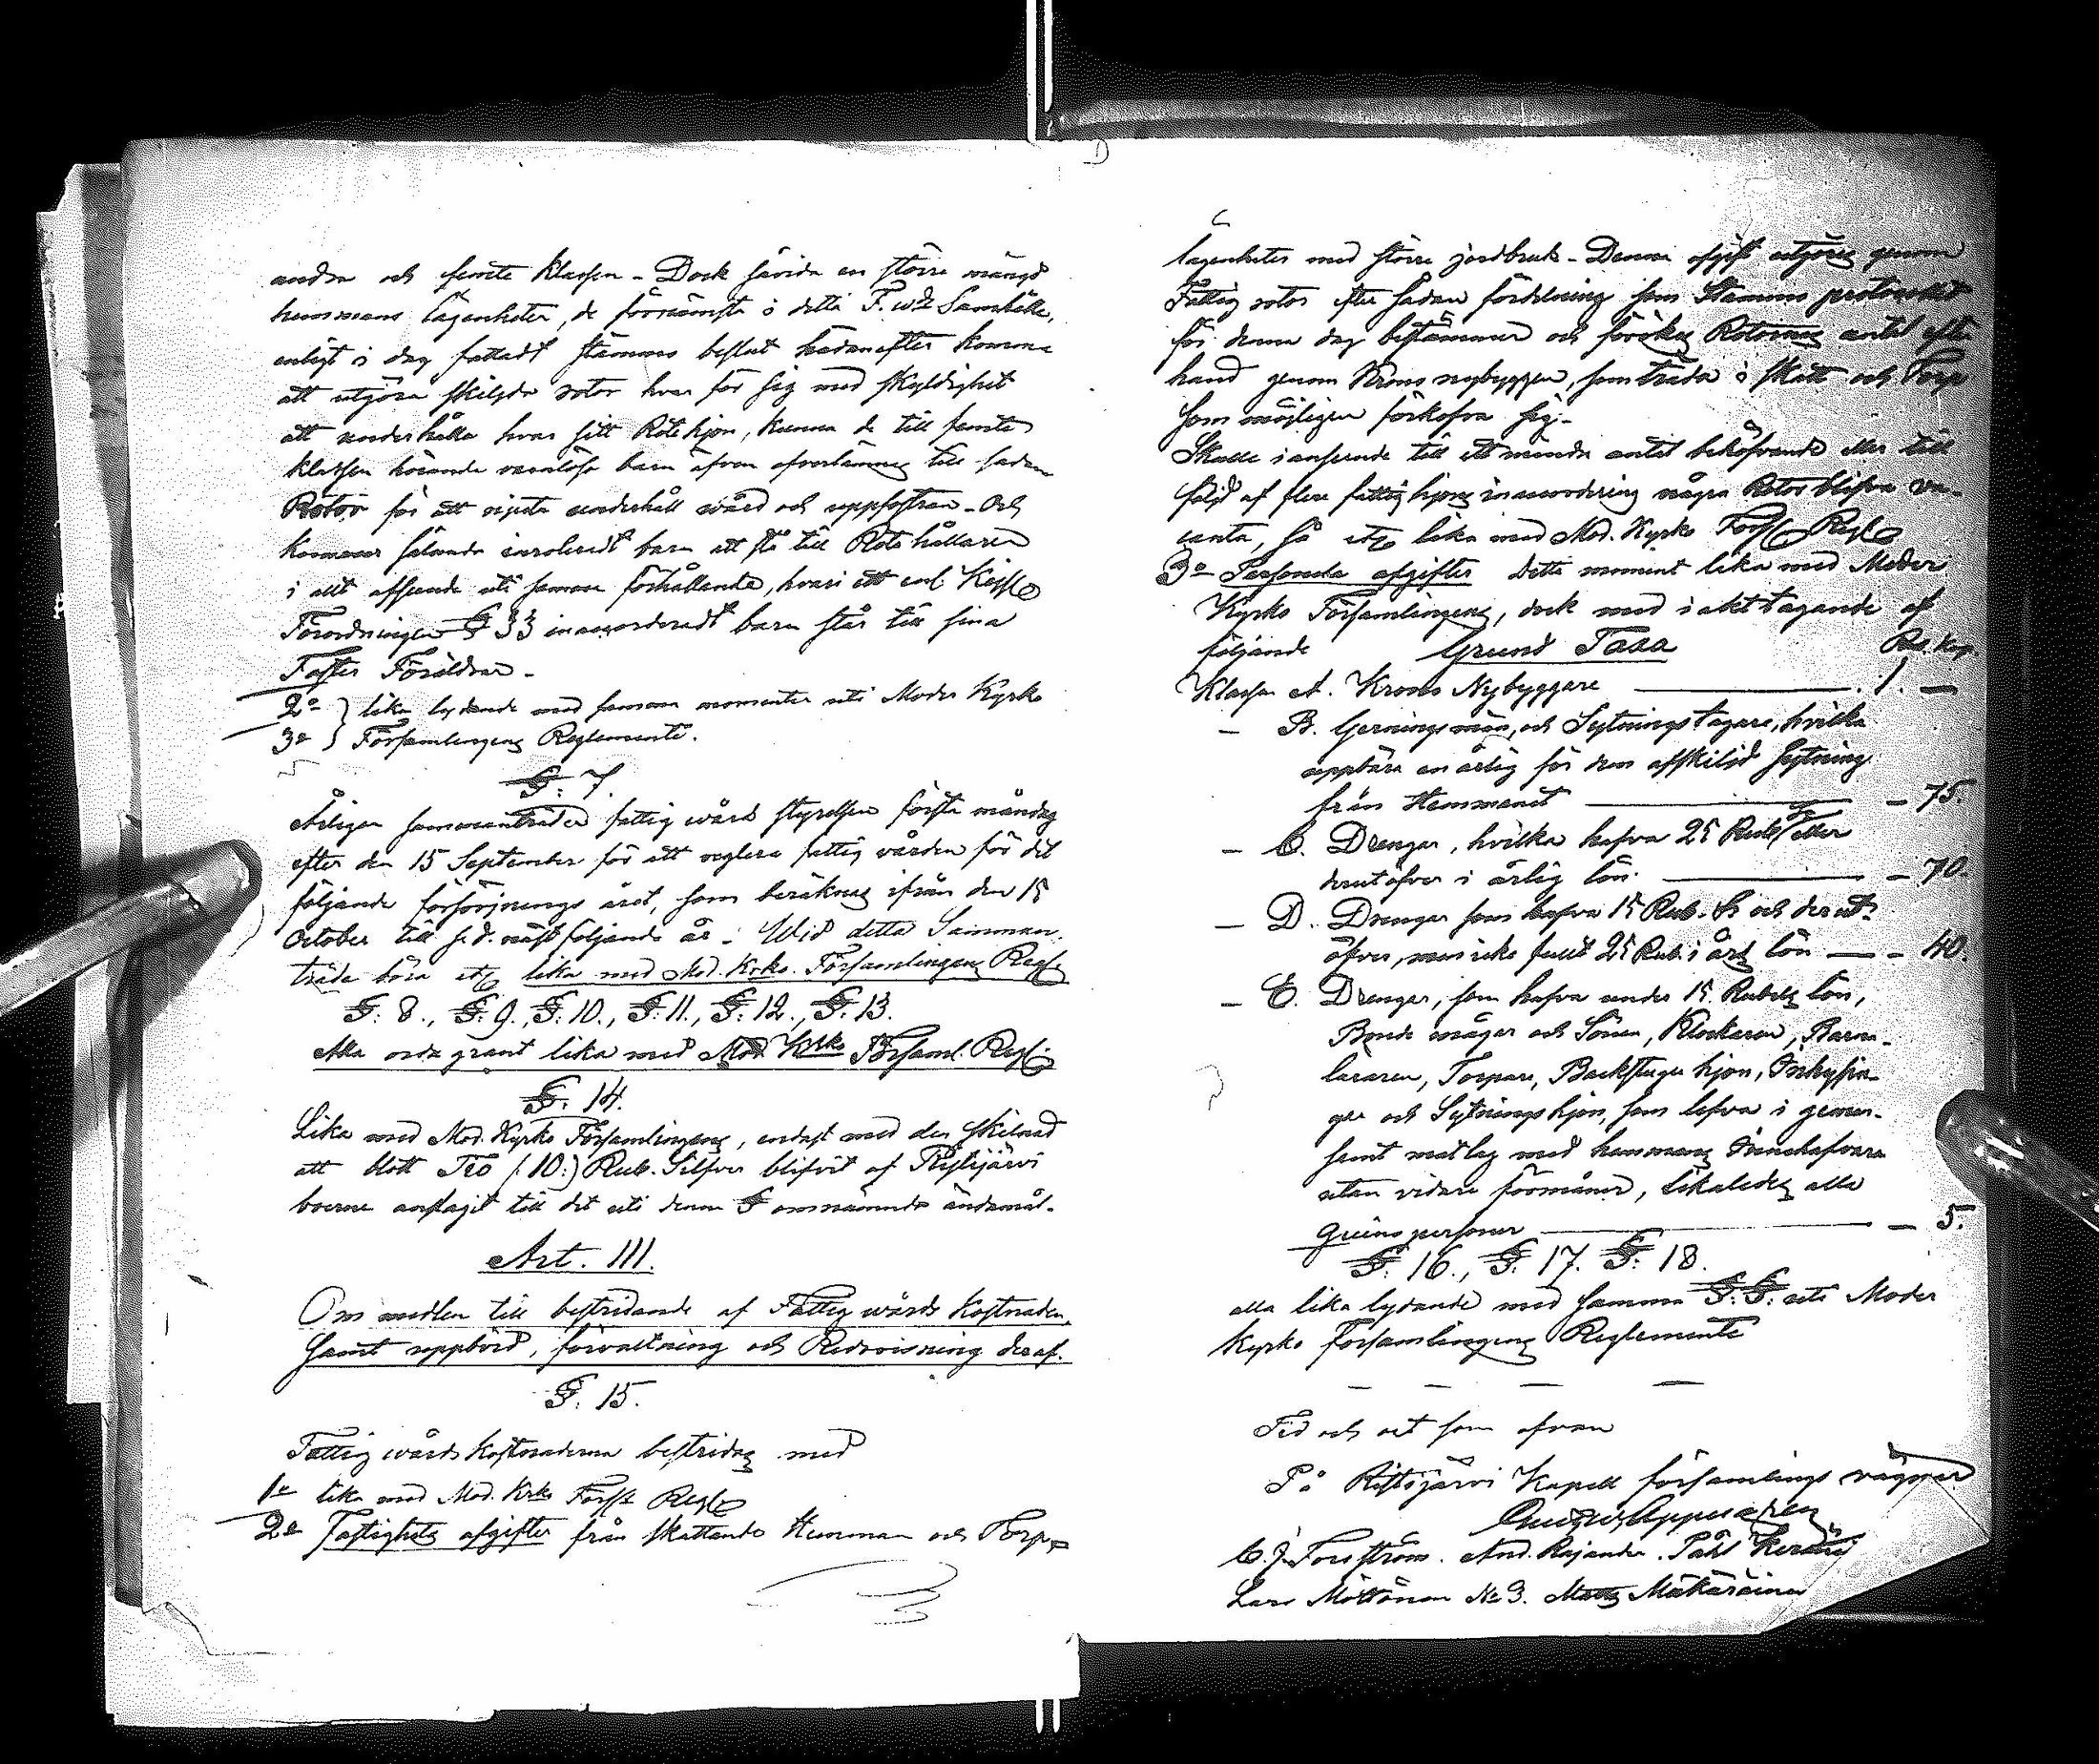 andra och femte Klassen – Dock såvida en större mängd
hemmans lägenheter, de förnämsta i detta F. wds Samhälle,
enligt i dag fattadt stämmo beslut hädanefter komma
att utgöra skilgda rotor hvar för sig med skyldighet
att underhålla hvar sitt Rotehjon, kunna de till femte
Klassen hörande vanlösa barn äfven öfverlämnas till sadan
Rotor för att njuta underhåll wård och uppfostran – Och
kommer sålunda inroteradt barn att stå till Rotehållaren
i allt afseende uti samma förhållande, hvari ett enl.
Förordningen § 33 inaccorderadt barn står till sina
Foster Föräldrar –
2o } lika lydande med samma momenter uti Moder Kyrko
3o } Församlingens Reglemente.
§. 7.
Årligen sammanträder fattig wårds styrelsen första måndag
efter den 15 September för att reglera fattig vården för det
följande försörjnings året, som beräknas ifrån den 15
October till s. d. näst följande år – Wid detta Samman
träde böra etc lika med Mod. Krko. Församlingens Regl
§. 8., §. 9., §. 10., §. 11., §. 12., §. 13.
Alla orda grant lika med Mod. Krko Församl. Regl:
§. 14.
Lika med Mod. Kyrko Församlingens, endast med den skilnad
att blott Tio (:10:) Rub. Silfver blifvit af Ristijärvi
boerne anslagit till det uti denna § omnämnde ändamål.
Art. III.
Om medlen till bestridande af Fattig wårds Kostnaden,
samt uppbörd, förvaltning och Redovisning deraf.
§. 15.
Fattig wårds Kostnaderna bestridas med
1o lika med Mod. Krko Förs Regl
2o Fastighets afgifter från skattande Hemman och Torp
lägenheter med större jordbruk – Denna afgift utgöres genom
Fattig rotor efter sadan fördelning som Stämmo protocollet
för denna dag bestämmer och förökas Rotornas antal efter
hand genom Krono nybyggen, som träda i skatt och Torp
som möjligen förkofra sig –
Skulle i anseende till ett mindre antal behöfvande eller till
följd af flere fattig hjons inaccordering några Rotor blifva va-
canta, så etc lika med Mod. Kyrko Förs Regl
3o Personela afgifter Detta moment lika med Moder
Kyrko Församlingens, dock med iakttagande af
följande Grund Taxa Rub. Kop.
Klassen A. Krono Nybyggare – 1. –
– B. Gerningsmän, och Sytningstagare, hvilka
uppbära en årlig för dem afskiljd sytning
från Hemmanet – 75.
– C. Drengar, hvilka hafva 25 Rub eller
derutöfver i årlig lön. – 70.
– D. Drengar som hafva 15 Rub. S. och derut-
öfver, men icke fullt 25 Rub. i årl lön – 40.
– E. Drengar, som hafva under 15. Rubels lön,
Bonde mågar och Söner, Klockaren, Barna-
läraren, Torpare, Backstugu hjon, Inhysin-
gar och Sytningshjon, som lefva i gemen-
samt matlag med hemmans Innehafvare
utan vidare förmåner, likaledes alla
Qvinspersoner – 5.
§. 16., §. 17. §. 18.
alla lika lydande med samma §. §. uti Moder
Kyrko församlingens Reglemente
– – – –
Tid och ort som ofvan
På Ristijärvi Kapell församlings vägnar
C. J. Forsström. And. Rajander. Påhl Keränen
Lars Möttönen No 3. Matts Mäkäräinen